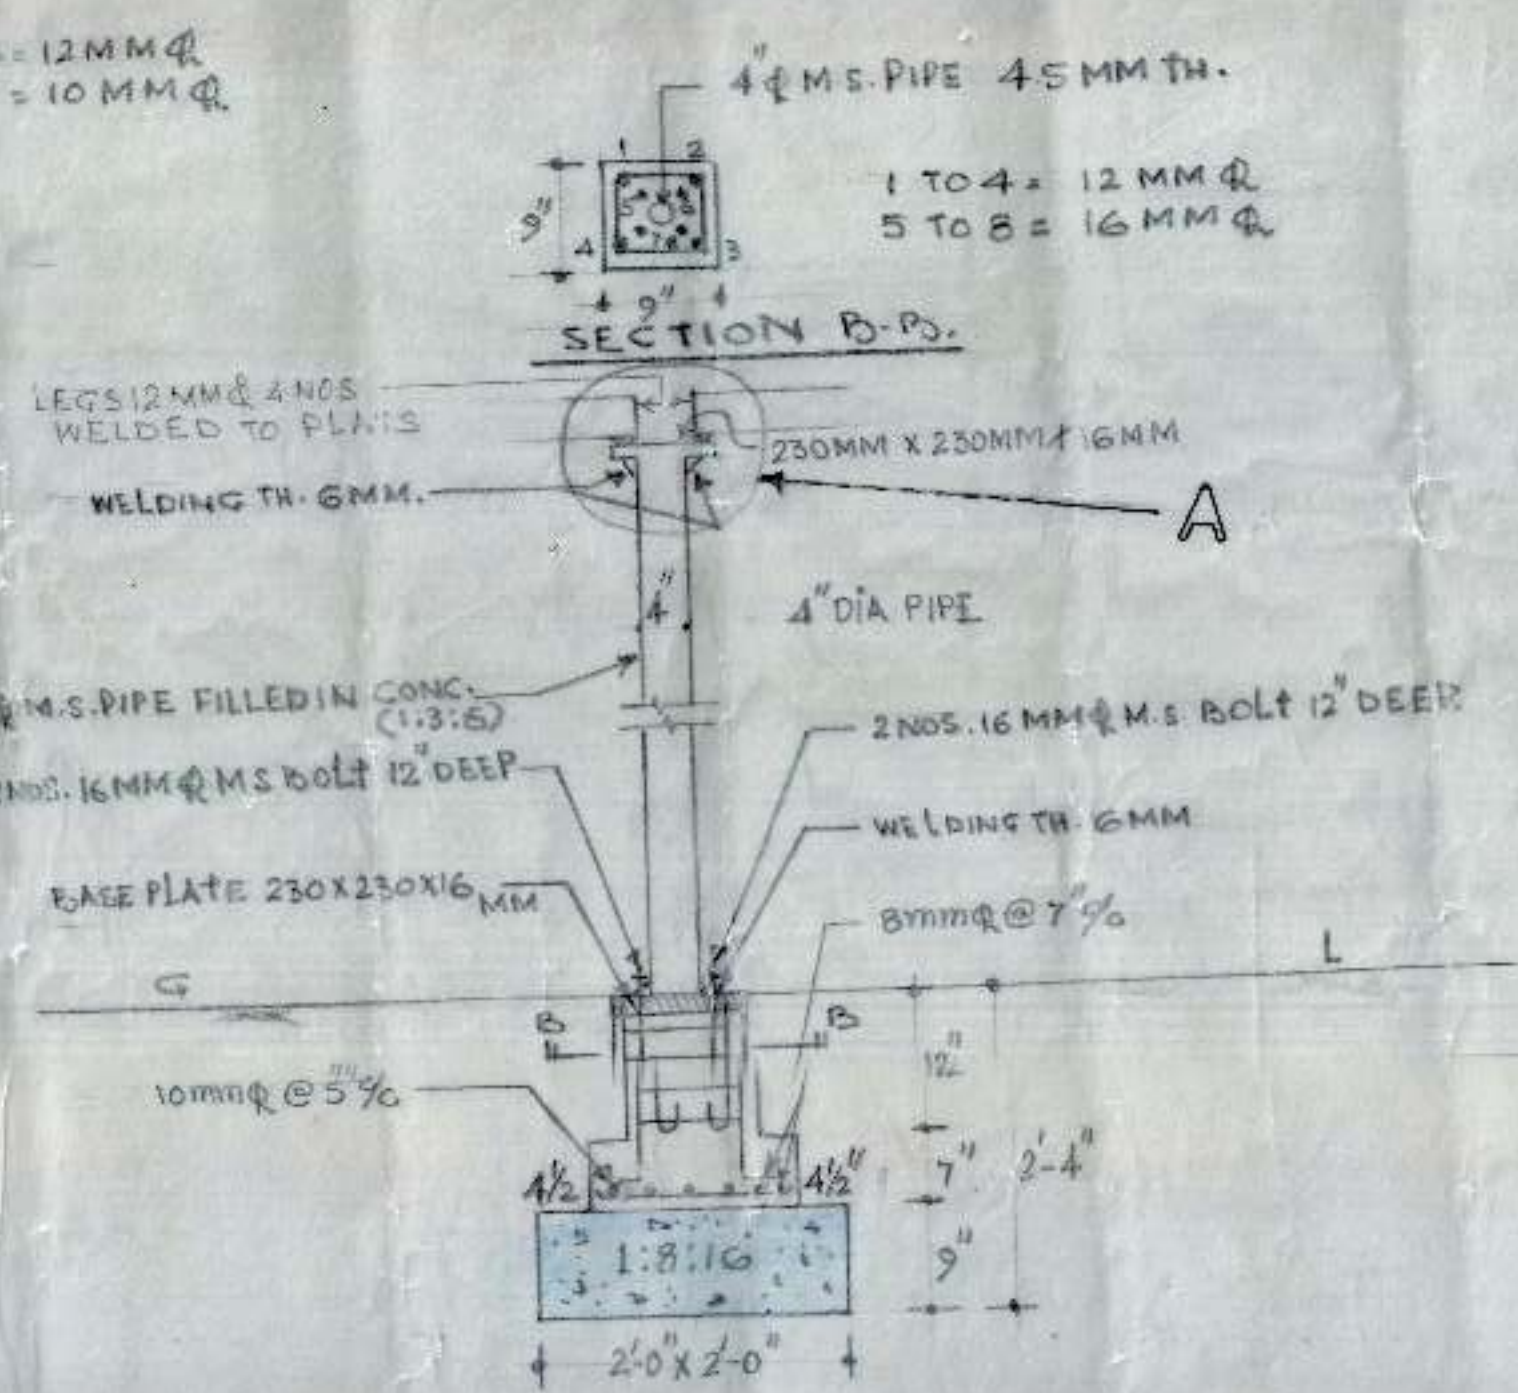 = 12MM⌀
= 10 MM⌀
4"⌀ M.S. PIPE 4.5 MM TH.
1 2
9"
5 6
7
4 3
9"
1 TO 4 = 12 MM⌀
5 TO 8 = 16 MM⌀
SECTION B-B.
LEGS 12MM⌀ 4 NOS
WELDED TO
230MM X 230MM X 16MM
WELDING TH. 6MM.
A
4"
4" DIA PIPE
M.S. PIPE FILLED IN CONC.
(1:3:6)
2 NOS. 16 MM⌀ M.S BOLT 12" DEEP.
NOS. 16MM⌀ MS BOLT 12" DEEP
WELDING TH. 6MM
BASE PLATE 230X230X16 MM
8mm⌀ @ 7" c/c
G L
B B
10mm⌀ @ 5" c/c
12"
7" 2'-4"
4½ 4½"
9"
1:8:16
2'-0" X 2'-0"